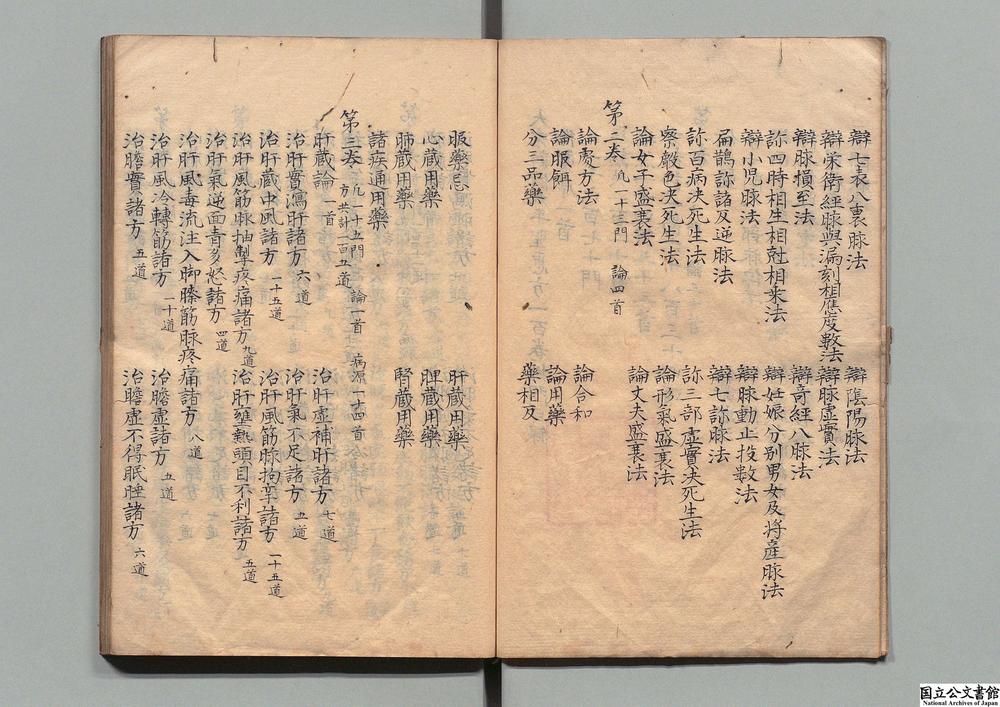 辯七表八裏脉法　辯陰陽脉法
辯榮衛經脉與漏刻相應度數法　辯脉虛實法
辯脉損至法　辯竒經八脉法
診四時相生相尅相乘法　辯妊娠分别男女及將産脉法
辯小児脉法　辯脉動止投數法
扁鵲診諸及逆脉法　辯七診脉法
診百病决死生法　診三部虛實决死生法
察聲色决死生法　論形氣盛衰法
論女子盛衰法　論丈夫盛衰法
第二卷　凡一十三門　論四首
論處方法　論合和
論服餌　論用藥
分三品藥　藥相反
服藥忌　肝蔵用藥
心蔵用藥　脾蔵用藥
肺蔵用藥　腎蔵用藥
諸疾通用藥
第三卷　凡一十五門　論一首　病源一十四首
方共計一百五道
肝蔵論　一首　治肝虛補肝諸方　七道
治肝實瀉肝諸方　六道　治肝氣不足諸方　五道
治肝蔵中風諸方　一十五道　治肝風筋脉拘挛諸方　一十五道
治肝風筋脉抽掣疼痛諸方　九道　治肝壅熱頭目不利諸方　五道
治肝氣逆面青多怒諸方　四道
治肝風毒流注入脚膝筋脉疼痛諸方　八道
治肝風冷轉筋諸方　一十道　治膽虛諸方　五道
治膽實諸方　五道　治膽虛不得眠睡諸方　六道
国立公文書館
National Archives of Japan